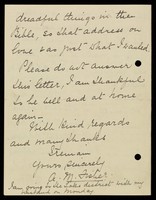 dreadful things in the
Bible, so that address on
Love was just what I wanted.
Please do not answer
this letter, I am thankful
to be well and at home
again.
With kind regards
and many thanks
I remain
Yours sincerely
A. M. Foster
I am going to the Lakes district with my
husband on Monday